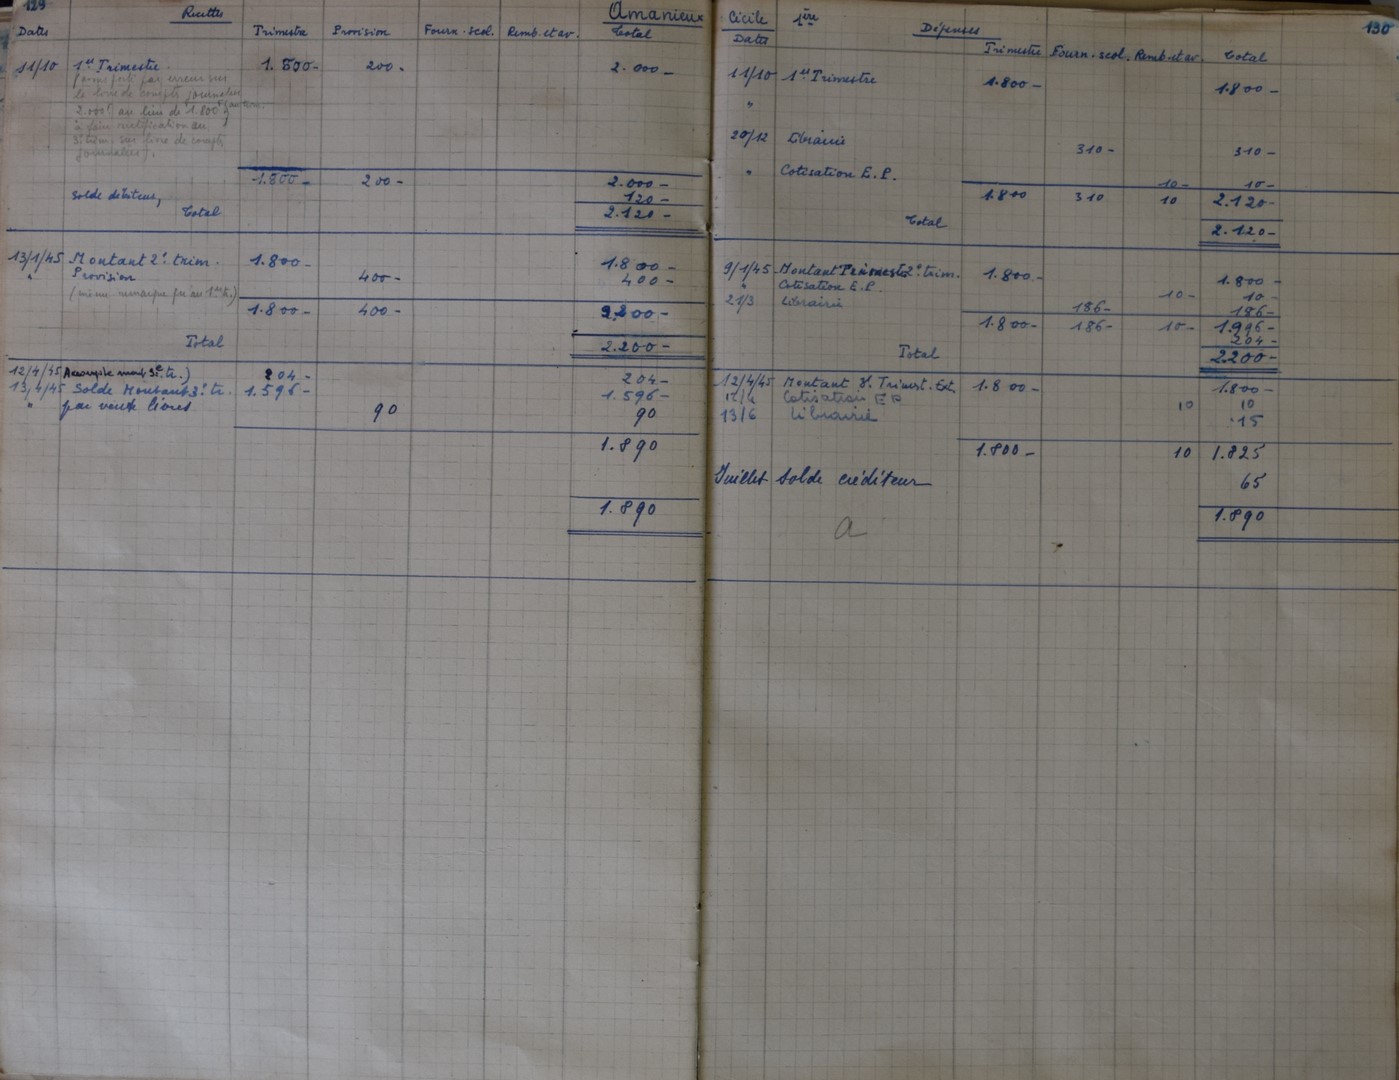 129
Recettes
Amanieux
Dates Trimestre Provision Fourn. scol. Remb. et av. Total
11/10 1er Trimestre. 1.800- 200. 2.000-
par erreur sur
le livre de compte journalier
2.000f au lieu de 1.800f
à faire rectification au
sur livre de compte
journalier).
1.800- 200- 2.000-
Solde débiteur, 120-
Total 2.120-
13/1/45 Montant 2e trim. 1.800- 1.800-
" Provision 400- 400-
(même remarque qu'au 1er tr.)
1.800- 400- 2.200-
Total 2.200-
12/4/45 Acompte mont. 3e tr.) 204- 204-
13/4/45 Solde Montant 3e tr. 1.596- 1.596-
" par vente livres 90 90
1.890
1.890
Cécile 1ère
130
Dépenses
Dates Trimestre Fourn. scol. Remb. et av. Total
11/10 1er Trimestre 1.800- 1.800-
"
20/12 Librairie 310- 310-
" Cotisation E.P. 10- 10-
1.800 310 10 2.120-
Total 2.120-
9/1/45 Montant Trimestre 2e trim. 1.800- 1.800-
" Cotisation E.P. 10- 10-
21/3 Librairie 186- 186-
1.800- 186- 10- 1.996-
204-
Total 2.200-
12/4/45 Montant 3e Trimest. Ext. 1.800- 1.800-
Cotisation E P 10 10
13/6 Librairie 15
1.800- 10 1.825
Juillet Solde créditeur 65
1.890
a